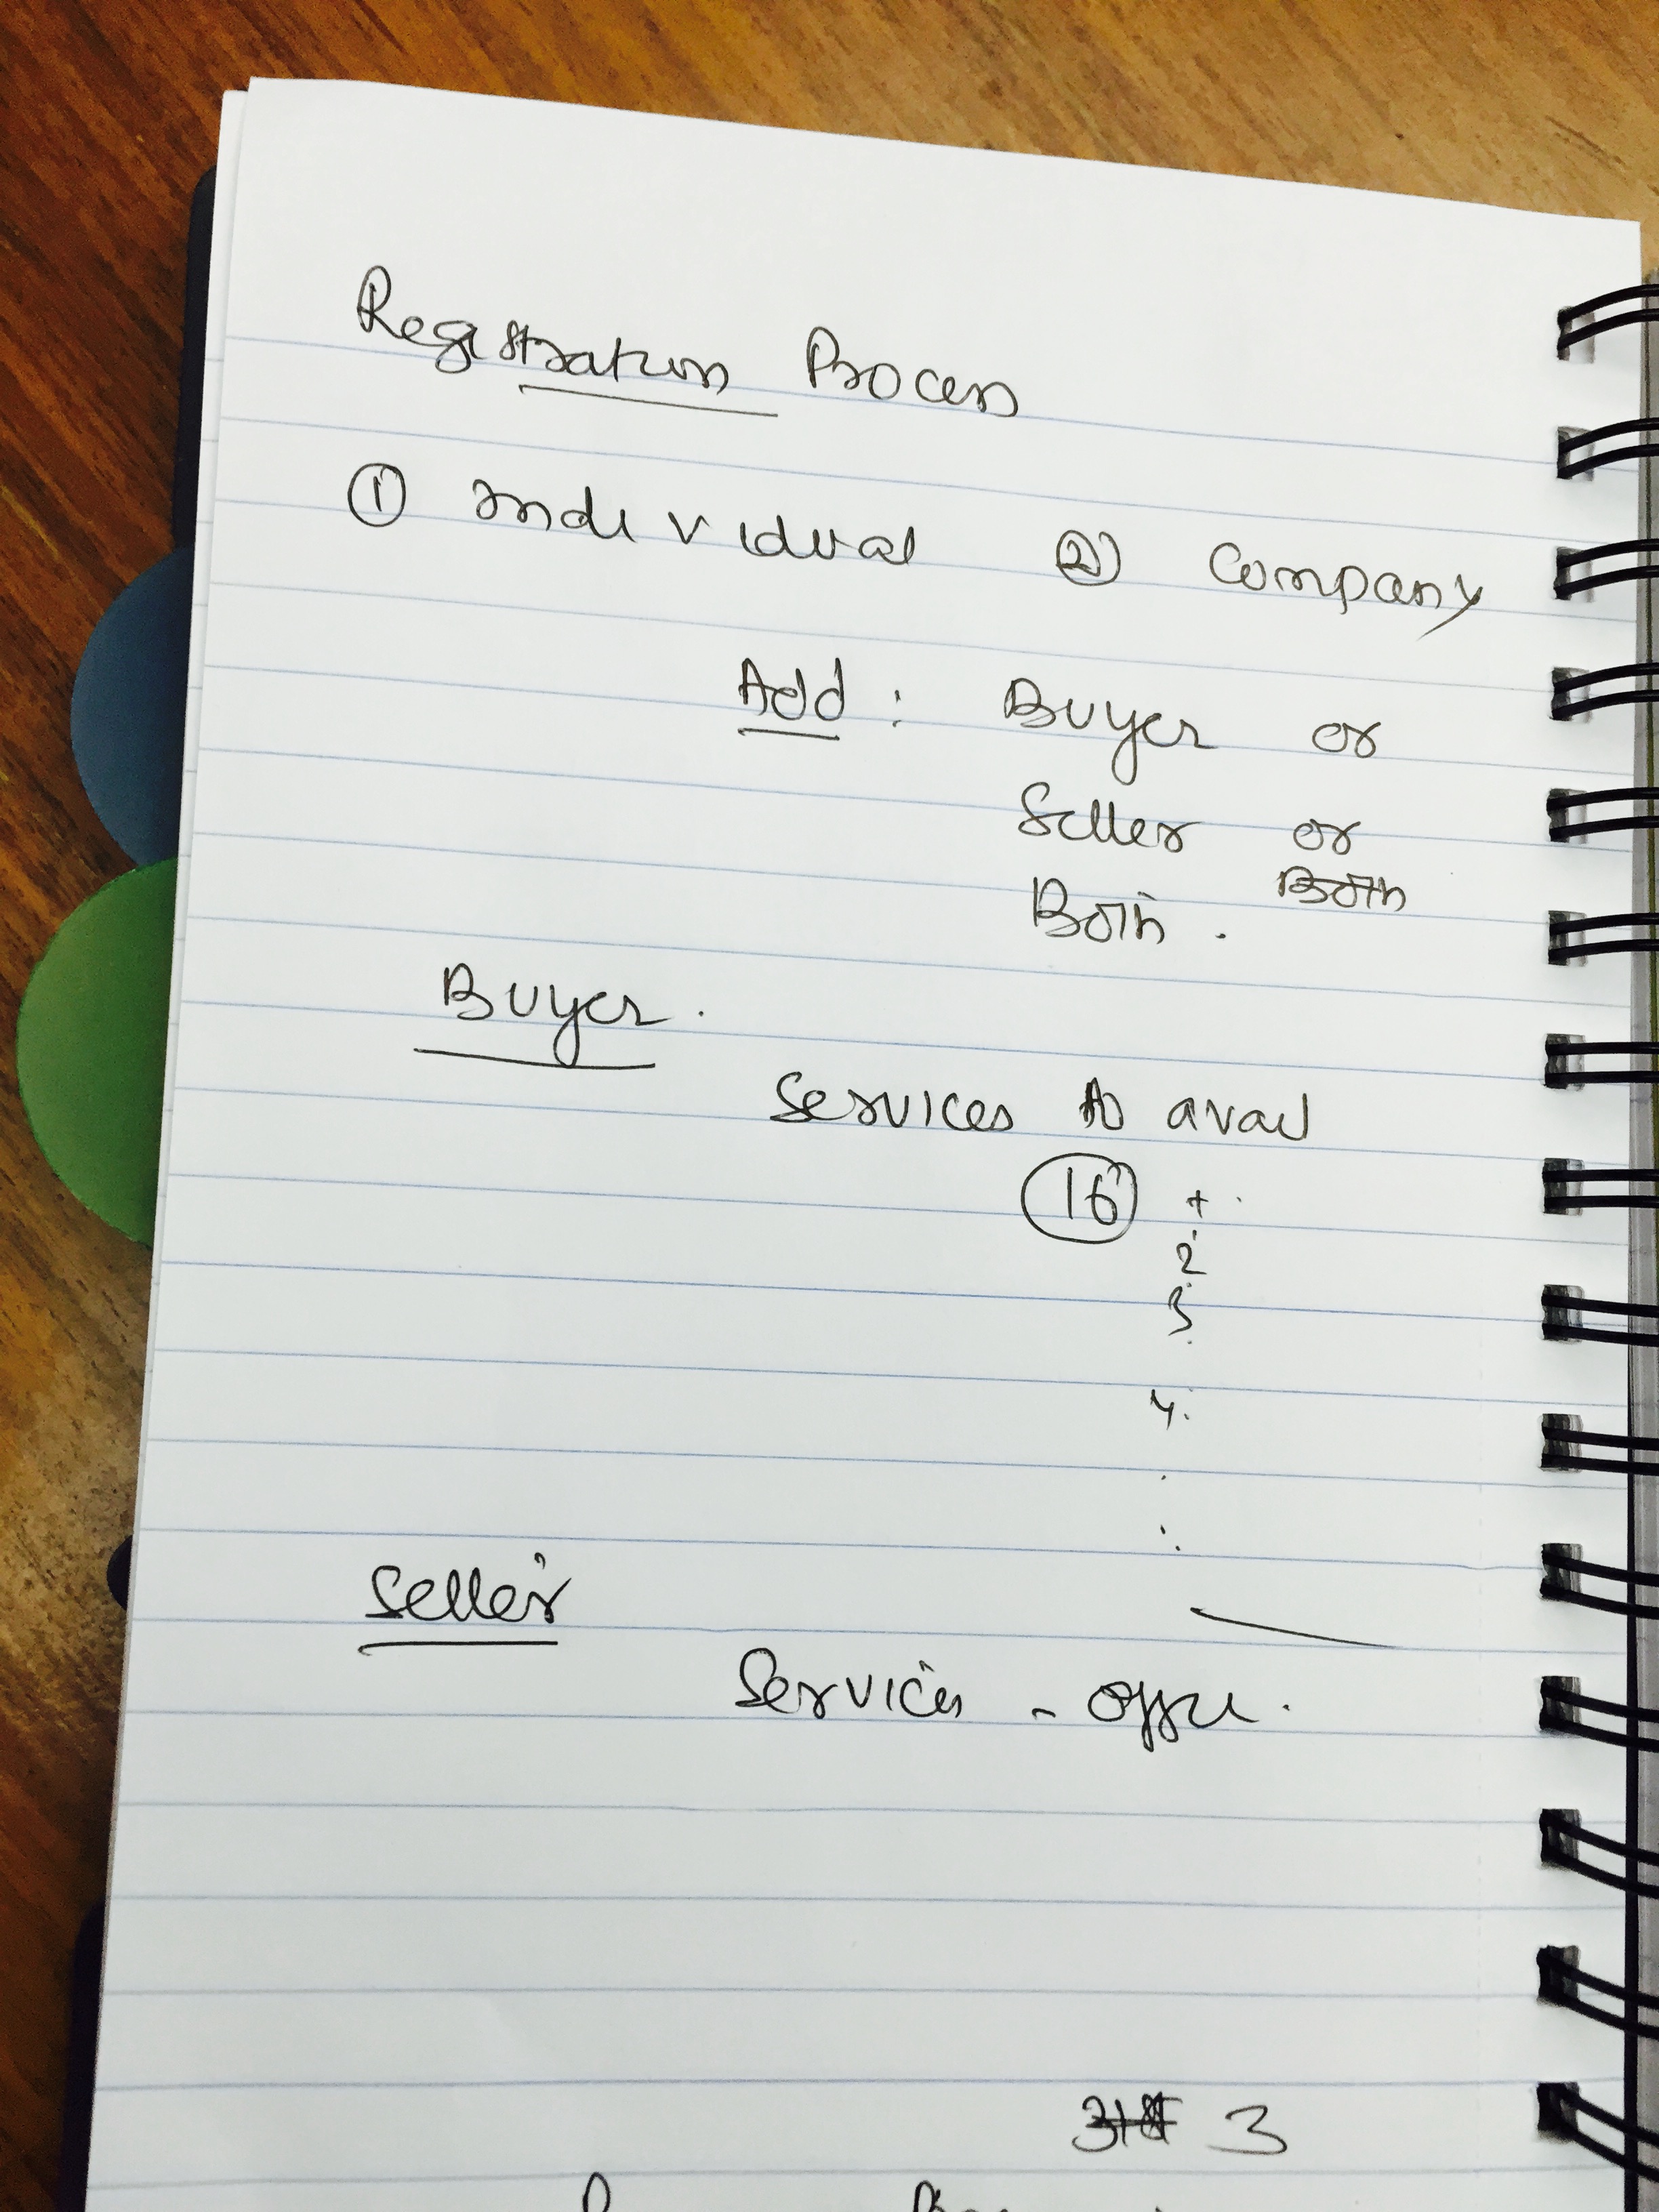 Registration Process
① Individual ② Company
Add : Buyer or
Seller or
Both
Both .
Buyer .
Services to avail
16 +
2
3
4.
Seller
Services - offer .
3